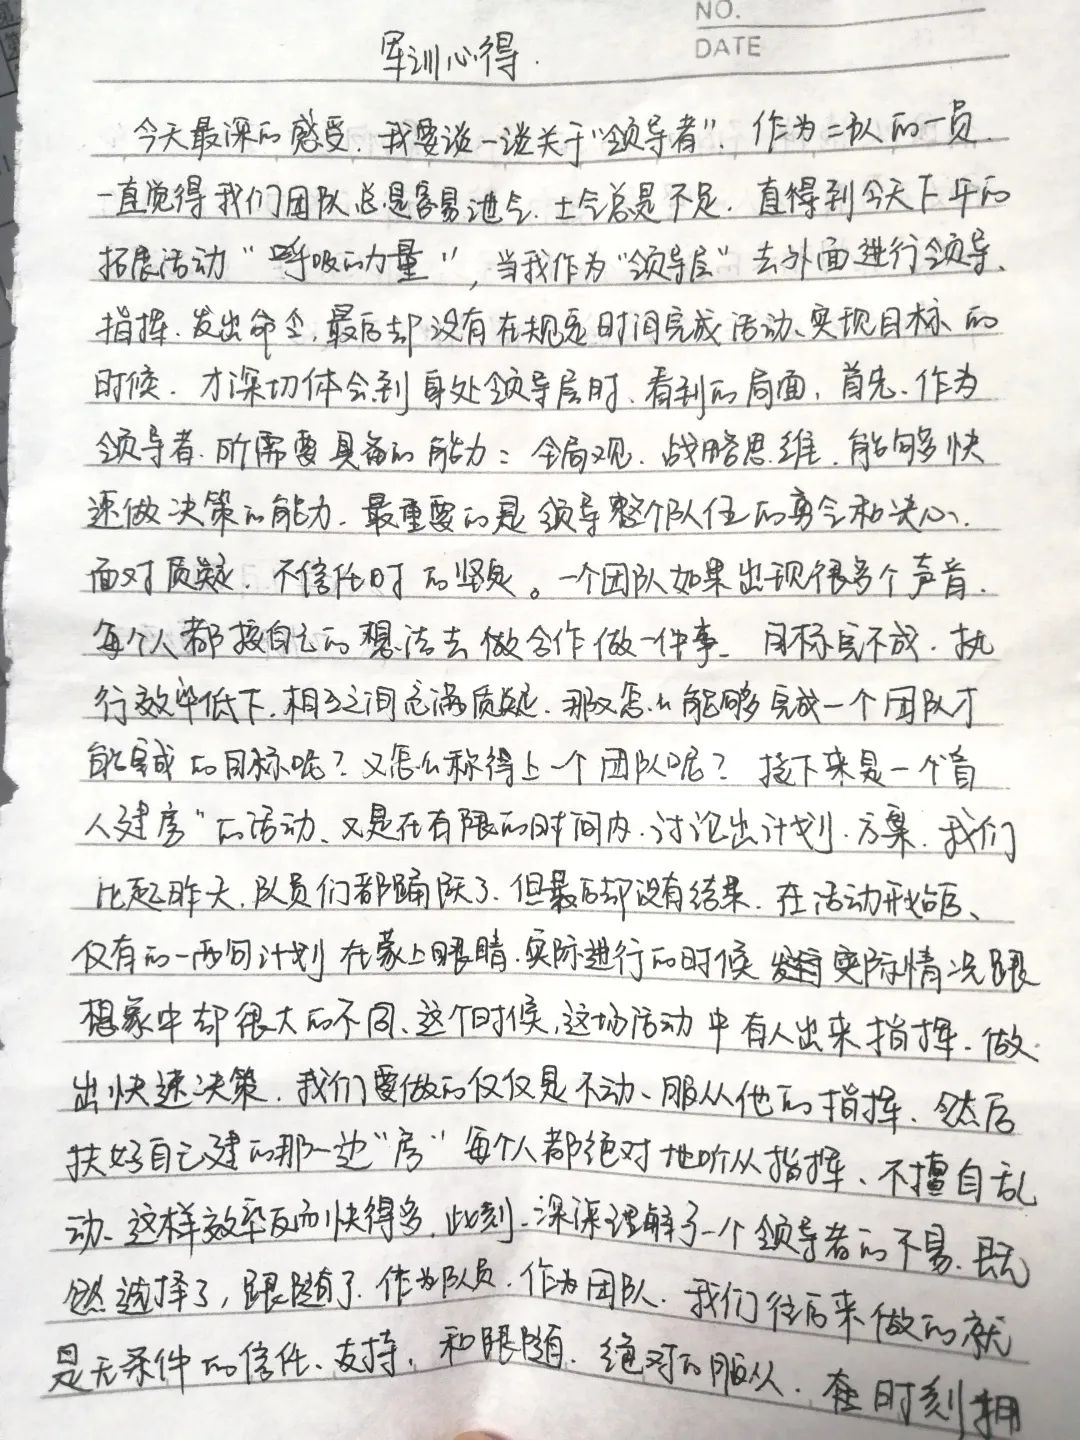 NO.
DATE
军训心得.
今天最深的感受,我要谈一谈关于“领导者”,作为二队的一员,
一直觉得我们团队总是容易泄气,士气总是不足,直得到今天下午的
拓展活动“呼吸的力量”,当我作为“领导层”去外面进行领导、
指挥、发出命令,最后却没有在规定时间完成活动、实现目标的
时候,才深切体会到身处领导层时,看到的局面,首先,作为
领导者,所需要具备的能力:全局观,战略思维,能够快
速做决策的能力,最重要的是领导整个队伍的勇气和决心,
面对质疑,不信任时的坚定。一个团队如果出现很多个声音,
每个人都按自己的想法去做合作做一件事,目标完不成,执
行效率低下,相互之间充满质疑,那又怎么能够完成一个团队才
能完成的目标呢?又怎么称得上一个团队呢?接下来是一个盲
人建房”的活动,又是在有限的时间内,讨论出计划,方案,我们
比起昨天,队员们都踊跃了,但最后却没有结果,在活动开始后、
仅有的一两句计划在蒙上眼睛,实际进行的时候 实际情况跟
想象中却很大的不同,这个时候,这场活动中有人出来指挥,做
出快速决策,我们要做的仅仅是不动、服从他的指挥,然后
扶好自己建的那一边“房”每个人都绝对地听从指挥、不擅自乱
动、这样效率反而快得多,此刻,深深理解了一个领导者的不易,既
然选择了,跟随了,作为队员,作为团队,我们往后来做的就
是无条件的信任、支持,和跟随,绝对的服从,在时刻拥